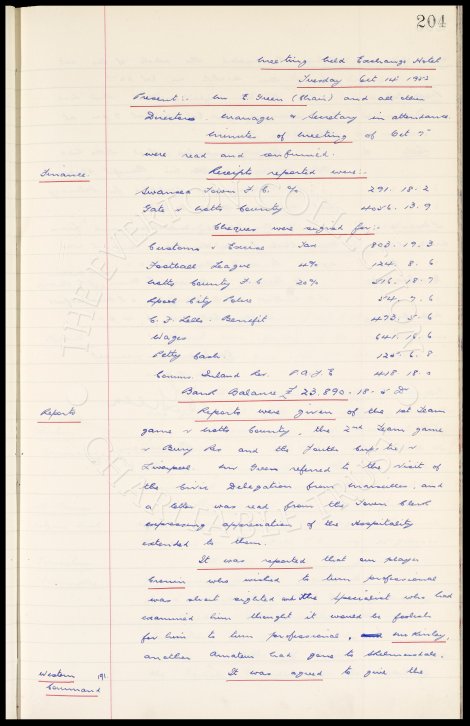 204
Meeting held Exchange Hotel
Tuesday Oct 14th 1952
Present:- Mr E. Green (Chair) and all other
Directors. Manager & Secretary in attendance
Minutes of Meeting of Oct 7th
were read and confirmed.
Finance. Receipts reported were:-
Swansea Town F.C. % 291. 18. 2
Gate v Notts County 4056. 13. 9
Cheques were signed for:-
Customs & Excise Tax 803. 19. 3
Football League 4% 124. 8. 6
Notts County F.C 20% 516. 18. 7
Lpool City Police 54. 7. 6
Benefit 473. 5. 6
Wages 641. 15. 6
Petty Cash. 125. 6. 8
Comms. Inland Rev. P.A.Y.E 418. 18. 0
Bank Balance £ 23,890. 18. 5 Dr
Reports Reports were given of the 1st Team
game v Notts County, the 2nd Team game
v Bury Res and the Youth Cup tie v
Liverpool. Mr Green referred to the visit of
the Civic Delegation from Marseilles, and
a letter was read from the Town Clerk
expressing appreciation of the Hospitality
extended to them.
It was reported that our player
who wished to turn professional
was short sighted and the specialist who had
examined him thought it would be foolish
for him to turn professional, McKinley,
another Amateur had gone to Skelmersdale.
Western It was agreed to give the
Command
THE EVERTON COLLECTION
CHARITABLE TRUST